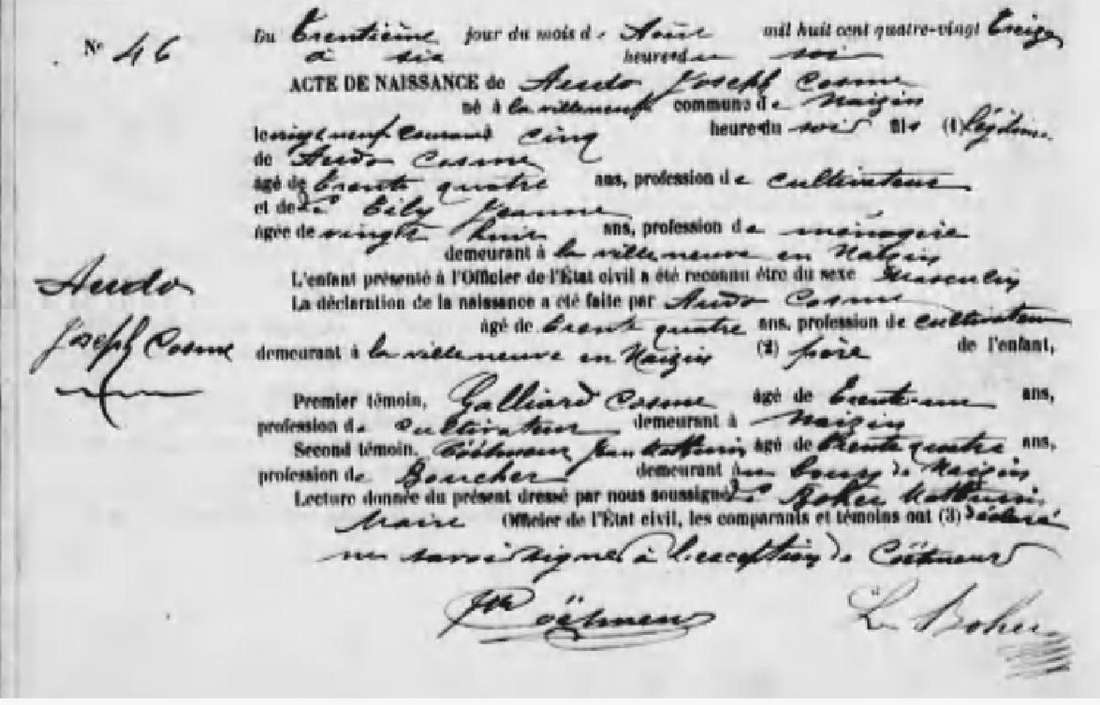 N° 46
Du trentième jour du mois de Août mil huit cent quatre-vingt treize
à six heures du soir
ACTE DE NAISSANCE de Audo Joseph Cosme
né à la villeneuve commune de Naizin
le vingt neuf courant cinq heure du soir fils (1) légitime
de Audo Cosme
âgé de trente quatre ans, profession de cultivateur
et de Le Tily Jeanne
âgée de vingt huit ans, profession de ménagère
demeurant à la villeneuve en Naizin
L'enfant présenté à l'Officier de l'État civil a été reconnu être du sexe Masculin
La déclaration de la naissance a été faite par Audo Cosme
âgé de trente quatre ans, profession de cultivateur
demeurant à la villeneuve en Naizin (2) père de l'enfant,
Audo
Joseph Cosme
Premier témoin, Galliard Cosme âgé de trente-un ans,
profession de cultivateur demeurant à Naizin
Second témoin, Coëtmeur Jean Mathurin âgé de trente quatre ans,
profession de Boucher demeurant au bourg de Naizin
Lecture donnée du présent dressé par nous soussigné Le Boher Mathurin
Maire Officier de l'État civil, les comparants et témoins ont (3) déclaré
ne savoir signer à l'exception de Coëtmeur
Coëtmeur
Le Boher